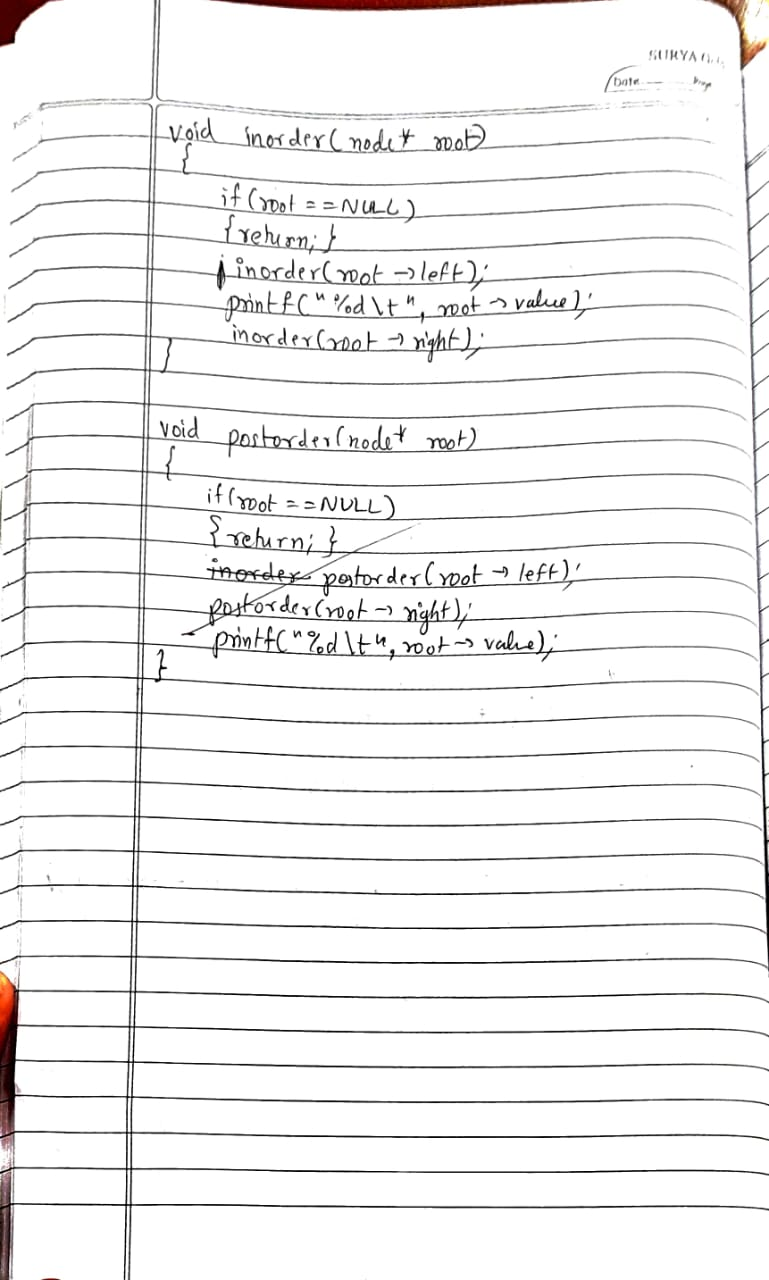 SURYA
Date Page
void inorder(node* root)
{
if(root ==NULL)
{return;}
inorder(root →left);
printf("%d\t", root → value);
inorder(root → right);
}
void postorder(node* root)
{
if(root ==NULL)
{return;}
inorder postorder(root → left);
postorder(root → right);
printf("%d\t", root → value);
}